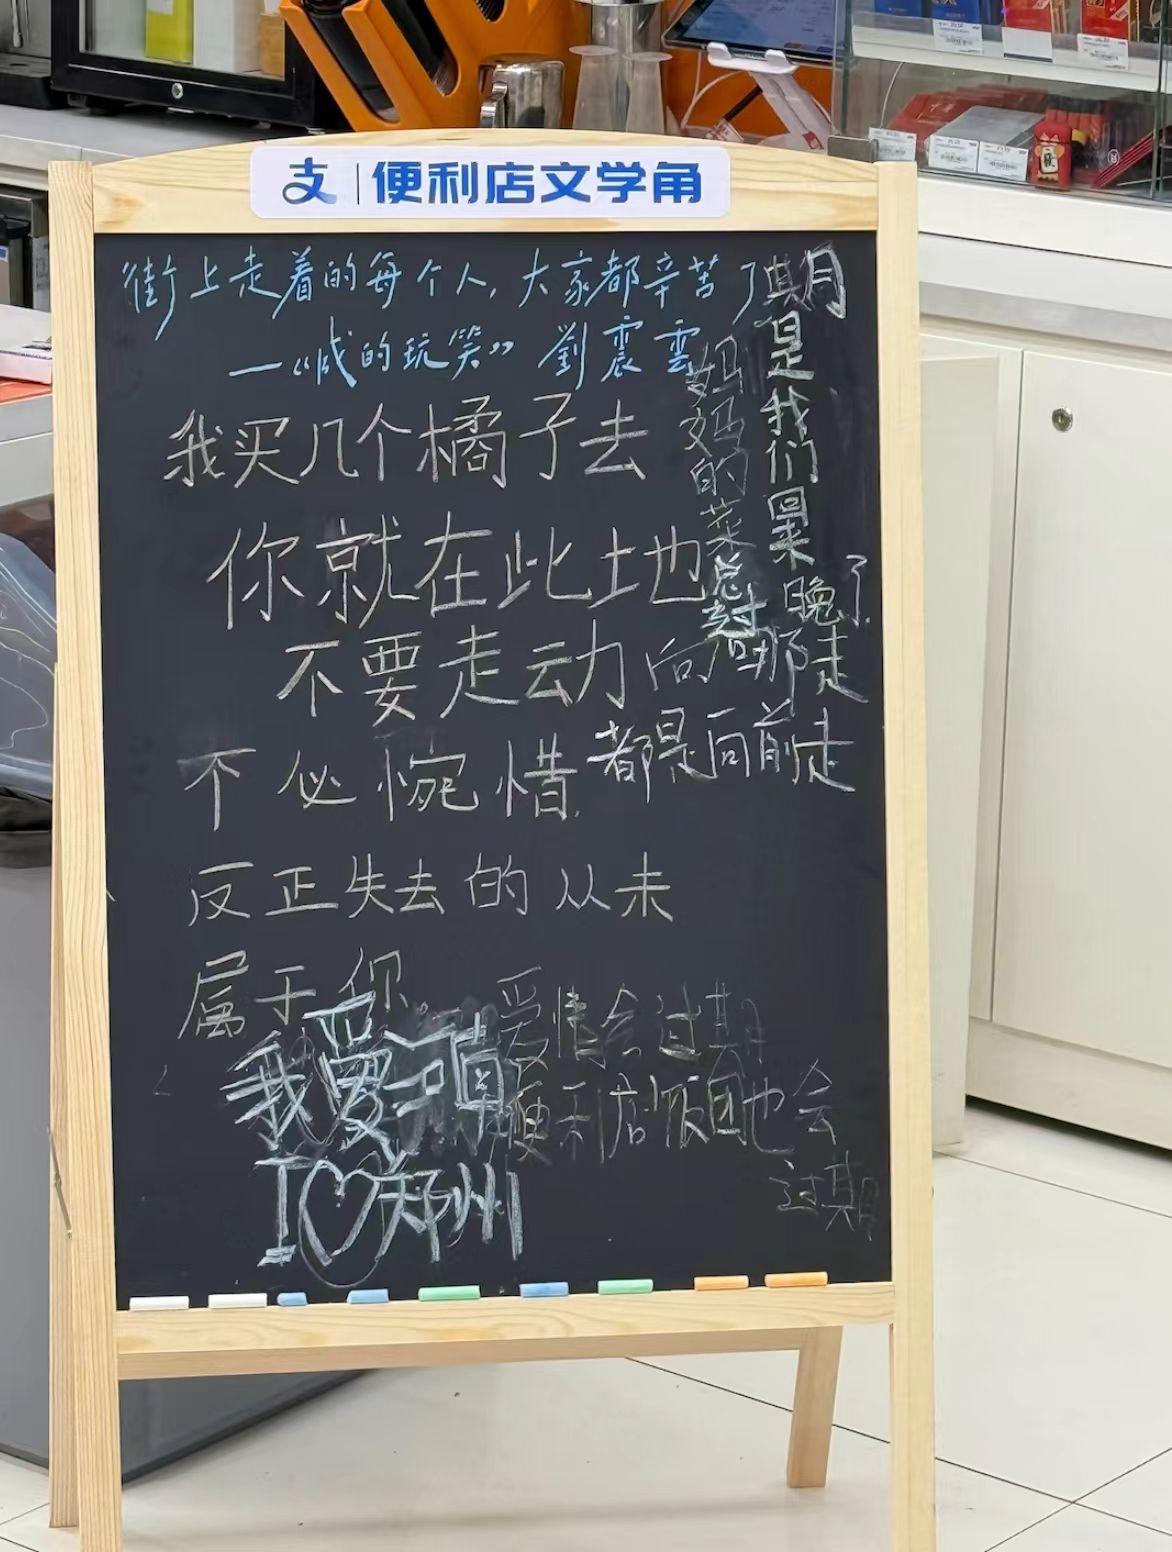 支|便利店文学角
街上走着的每个人,大家都辛苦了
—《咸的玩笑》 劉震雲
我买几个橘子去
你就在此地
不要走动
不必惋惜.
反正失去的从未
属于你。
期是我们
晚了
妈妈的菜总
向哪走
都是向前走
爱情会过期
便利店饭团也会
过期
我爱河南
I♡郑州